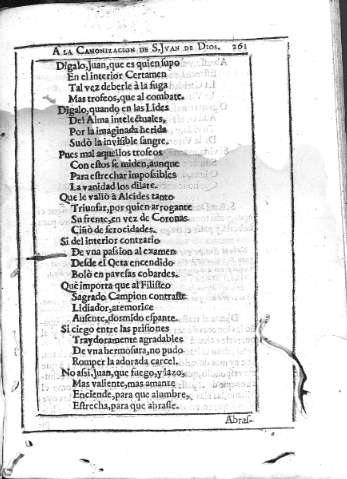 A LA CANONIZACION DE S. JVAN DE DIOS. 261
Digalo, Juan, que es quien supo
En el interior Certamen
Tal vez deberle à la fuga
Mas trofeos, que al combate.
Digalo, quando en las Lides
Del Alma intelectuales,
Por la imaginada herida
Sudò la invisible sangre.
Pues mal aquellos trofeos
Con estos se miden, aunque
Para estrechar impossibles
La vanidad los dilate.
Que le valiò à Alcides tanto
Triunfar, por quien arrogante
Su frente, en vez de Coronas
Ciñò de ferocidades.
Si del interior contrario
De vna passion al examen
Desde el Oeta encendido
Bolò en pavesas cobardes.
Què importa que al Filisteo
Sagrado Campion contraste
Lidiador, atemorice
Ausente, dormido espante.
Si ciego entre las prisiones
Traydoramente agradables
De vna hermosura, no pudo
Romper la adorada carcel.
No assi, Juan, que fuego, y lazo,
Mas valiente, mas amante
Enciende, para que alumbre,
Estrecha, para que abrase.
Abras-